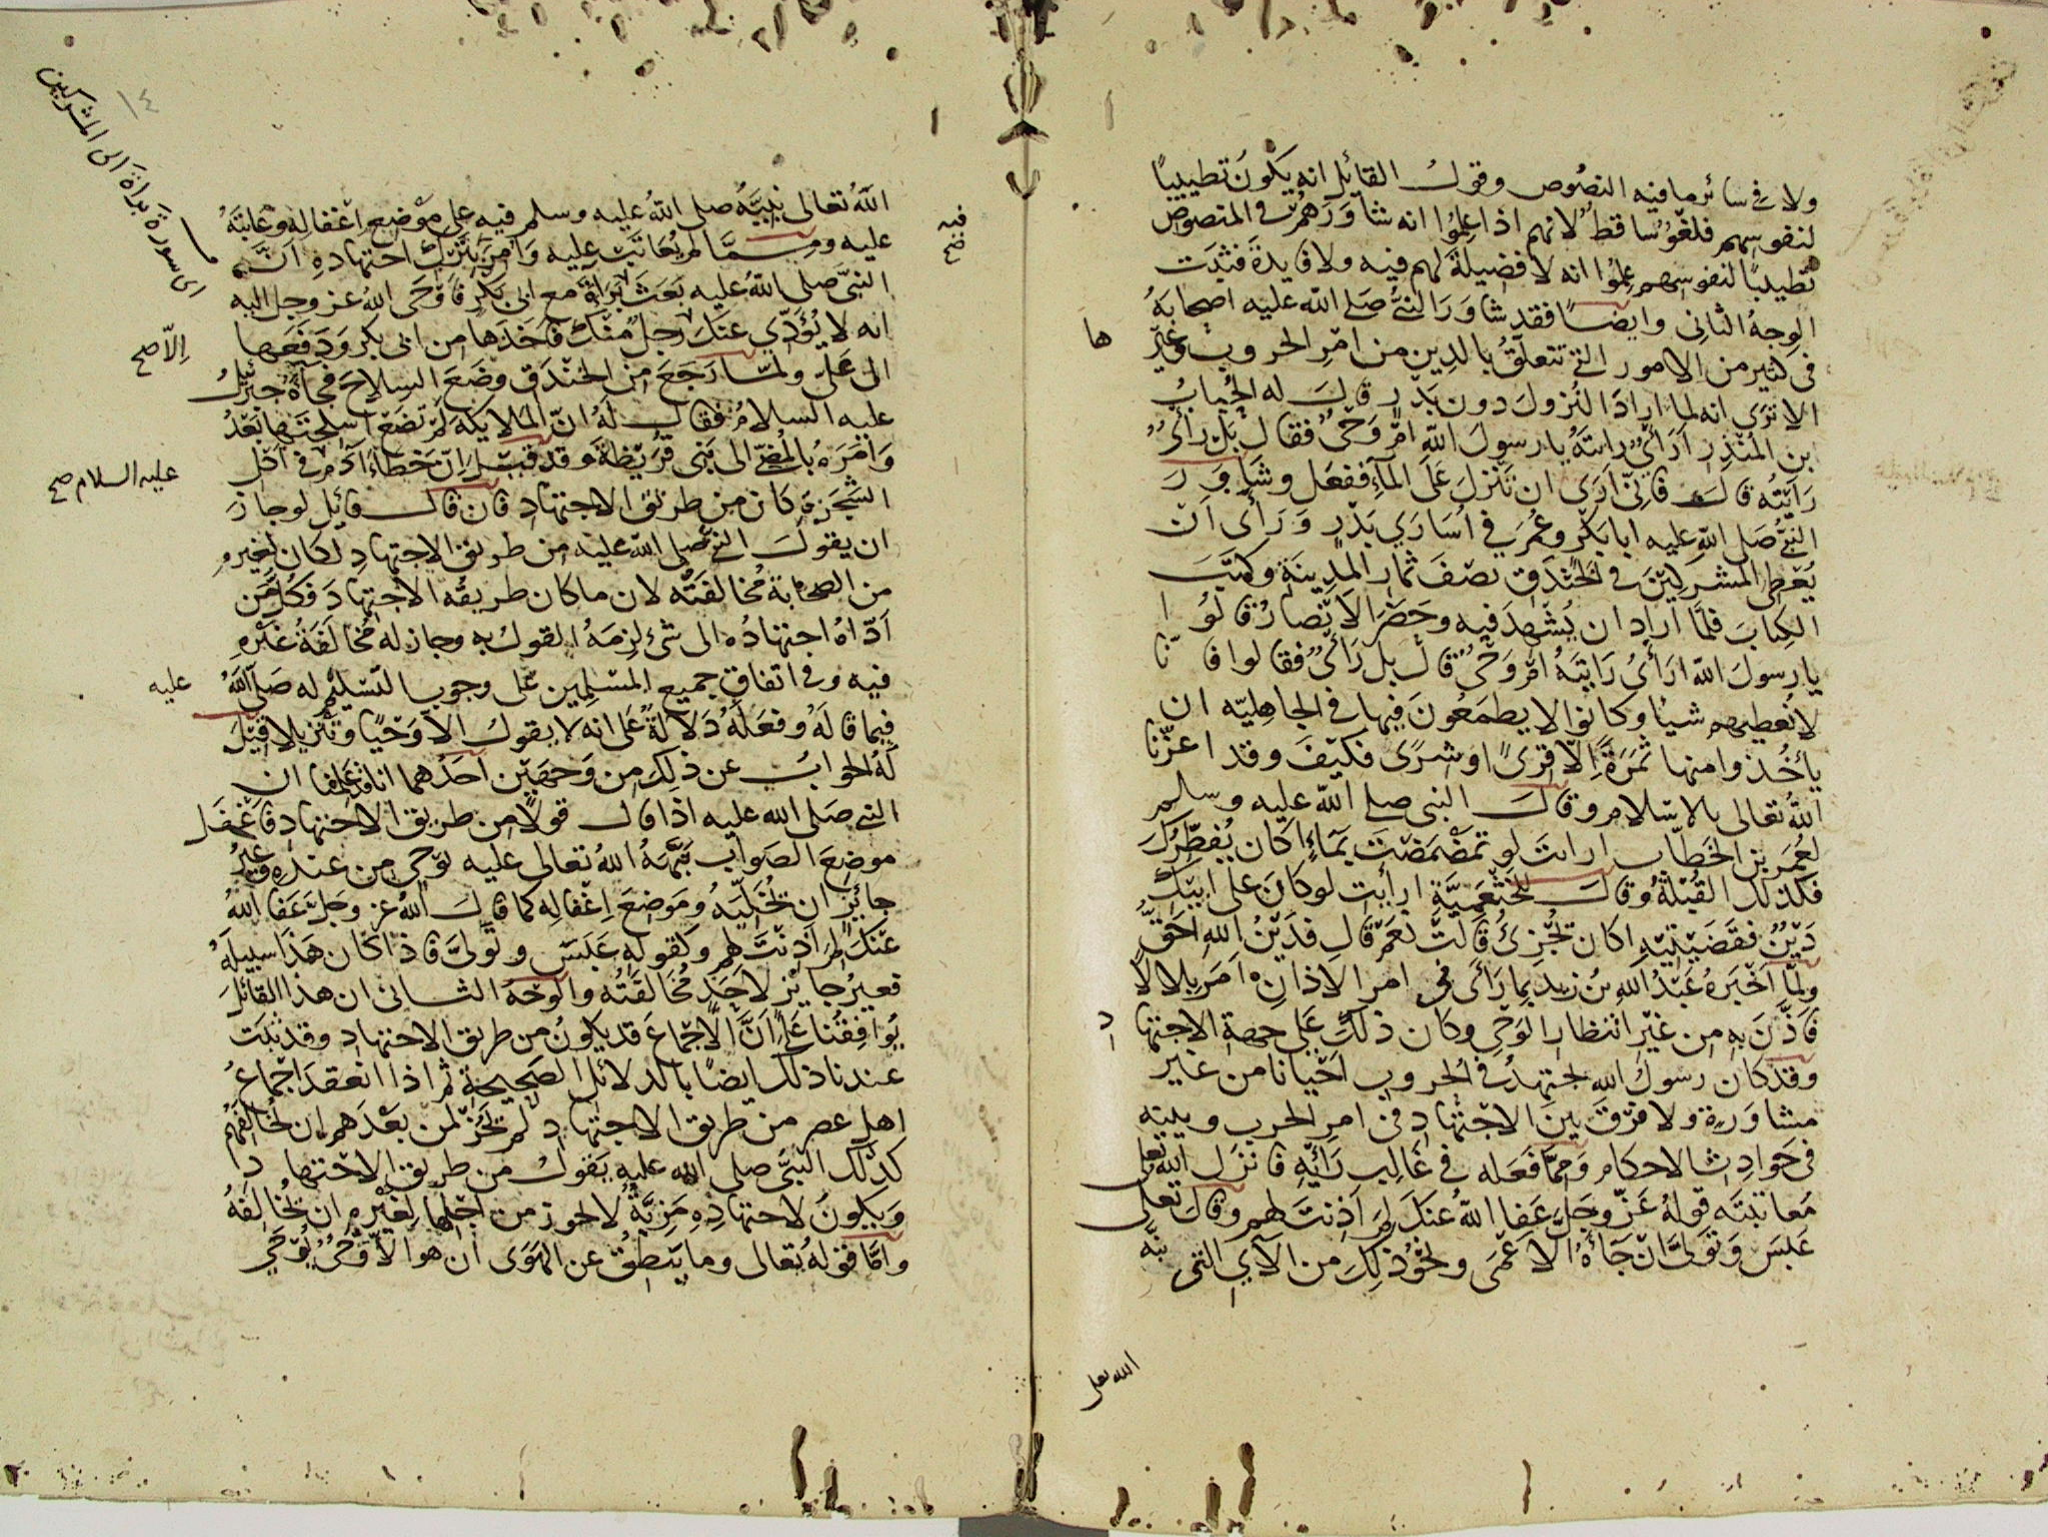 ولا في سائر ما فيه النصوص وقول القائل انه يكون تطييبًا
لنفوسهم فلغوٌ ساقط لانهم اذا علموا انه شاورهم في المنصوص
تطييبًا لنفوسهم علموا انه لا فضيلة لهم فيه ولا فايدة فثبت
الوجه الثاني وايضًا فقد شاور النبي صلى الله عليه اصحابه
في كثير من الامور التي تتعلق بالدين من امر الحروب وغير
ها
الا ترى انه لما اراد النزول دون بدر قال له الحباب
بن المنذر أرأيٌ رايته يا رسول الله ام وحيٌ فقال بل رأيٌ
رايته قال فاني ارى ان تنزل على الماء ففعل وشاور
النبي صلى الله عليه ابا بكر وعمر في اسارى بدر ورأى ان
يعطي المشركين في الخندق نصف ثمار المدينة وكتب
الكتاب فلما اراد ان يشهد فيه وحضر الانصار قالوا
يا رسول الله ارأي رايته ام وحيٌ قال بل رأيٌ فقالوا فانا
لا نعطيهم شيا وكانوا لا يطمعون فيها في الجاهليه ان
يأخذوا منها ثمرةً الا قرىً او شرىً فكيف وقد اعزنا
الله تعالى بالاسلام وقال النبي صلى الله عليه وسلم
لعمر بن الخطاب ارايت لو تمضمضت بماء اكان يفطرك
فكذلك القبلة وقال للخثعمية ارأيت لو كان على ابيك
دين فقضيتيه اكان تجزئ قالت نعم قال فدين الله احق
ولما اخبره عبد الله بن زيد بما رأى في امر الاذان امر بلالا
فاذن به من غير انتظار الوحي وكان ذلك على جهة الاجتها
د
وقد كان رسول الله يجتهد في الحروب احيانا من غير
مشاورة ولا فرق بين الاجتهاد في امر الحرب وبينه
في حوادث الاحكام ومما فعله في غالب رأيه فانزل الله تعلى
معاتبته قوله عز وجل عفا الله عنك لم اذنت لهم وقال تعلى
عبس وتولى ان جاءه الاعمى ونحو ذلك من الآي التي نبّه
الله تعلى
١٤
الله تعالى نبيّه صلى الله عليه وسلم فيه على موضع اغفاله وعاتبه
فيه صح
عليه ومما لم يعاتب عليه وامر بترك اجتهاده ان
النبي صلى الله عليه بعث براة مع ابي بكر فاوحى الله عز وجل اليه
اي سورة براة الى المشركين
انه لا يؤدي عنك رجل منك فاخذها من ابي بكر ودفعها
الّا صح
الى علي ولما رجع من الخندق وضع السلاح فجاءه جبرئيل
عليه السلام فقال له ان الملايكة لم تضع اسلحتها بعدُ
وامره بالمضي الى بني قريظة وقد قيل ان خطاء آدم في اكل
عليه السلام صح
الشجرة كان من طريق الاجتهاد فان قال قائل لو جاز
ان يقول النبي صلى الله عليه من طريق الاجتهاد لكان لغيره
من الصحابة مخالفته لان ما كان طريقه الاجتهاد فكل من
اداه اجتهاده الى شئ لزمه القول به وجاز له مخالفة غيره
فيه وفي اتفاق جميع المسلمين على وجوب التسليم له صلى الله عليه
فيما قاله وفعله دلالة على انه لا يقول الا وحيًا وتنزيلا قيل
له الجواب عن ذلك من وجهين احدهما انا قد علمنا ان
النبي صلى الله عليه اذا قال قولًا من طريق الاجتهاد فاغفل
موضع الصواب نبّهه الله تعالى عليه بوحي من عنده وغير
جائز ان يخليه وموضع اغفاله كما قال الله عز وجل عفا الله
عنك لم اذنت لهم وكقوله عبس وتولى فاذا كان هذا سبيله
فغير جائز لاحد مخالفته والوجه الثاني ان هذا القائل
يوافقنا على ان الاجماع قد يكون من طريق الاجتهاد وقد ثبت
عندنا ذلك ايضا بالدلائل الصحيحة ثم اذا انعقد اجماع
اهل عصر من طريق الاجتهاد لم يجز لمن بعدهم ان يخالفهم
كذلك النبي صلى الله عليه يقول من طريق الاجتهاد
ويكون لاجتهاده مزية لا يجوز من اجلها لغيره ان يخالفه
واما قوله تعالى وما ينطق عن الهوى ان هو الا وحيٌ يوحي